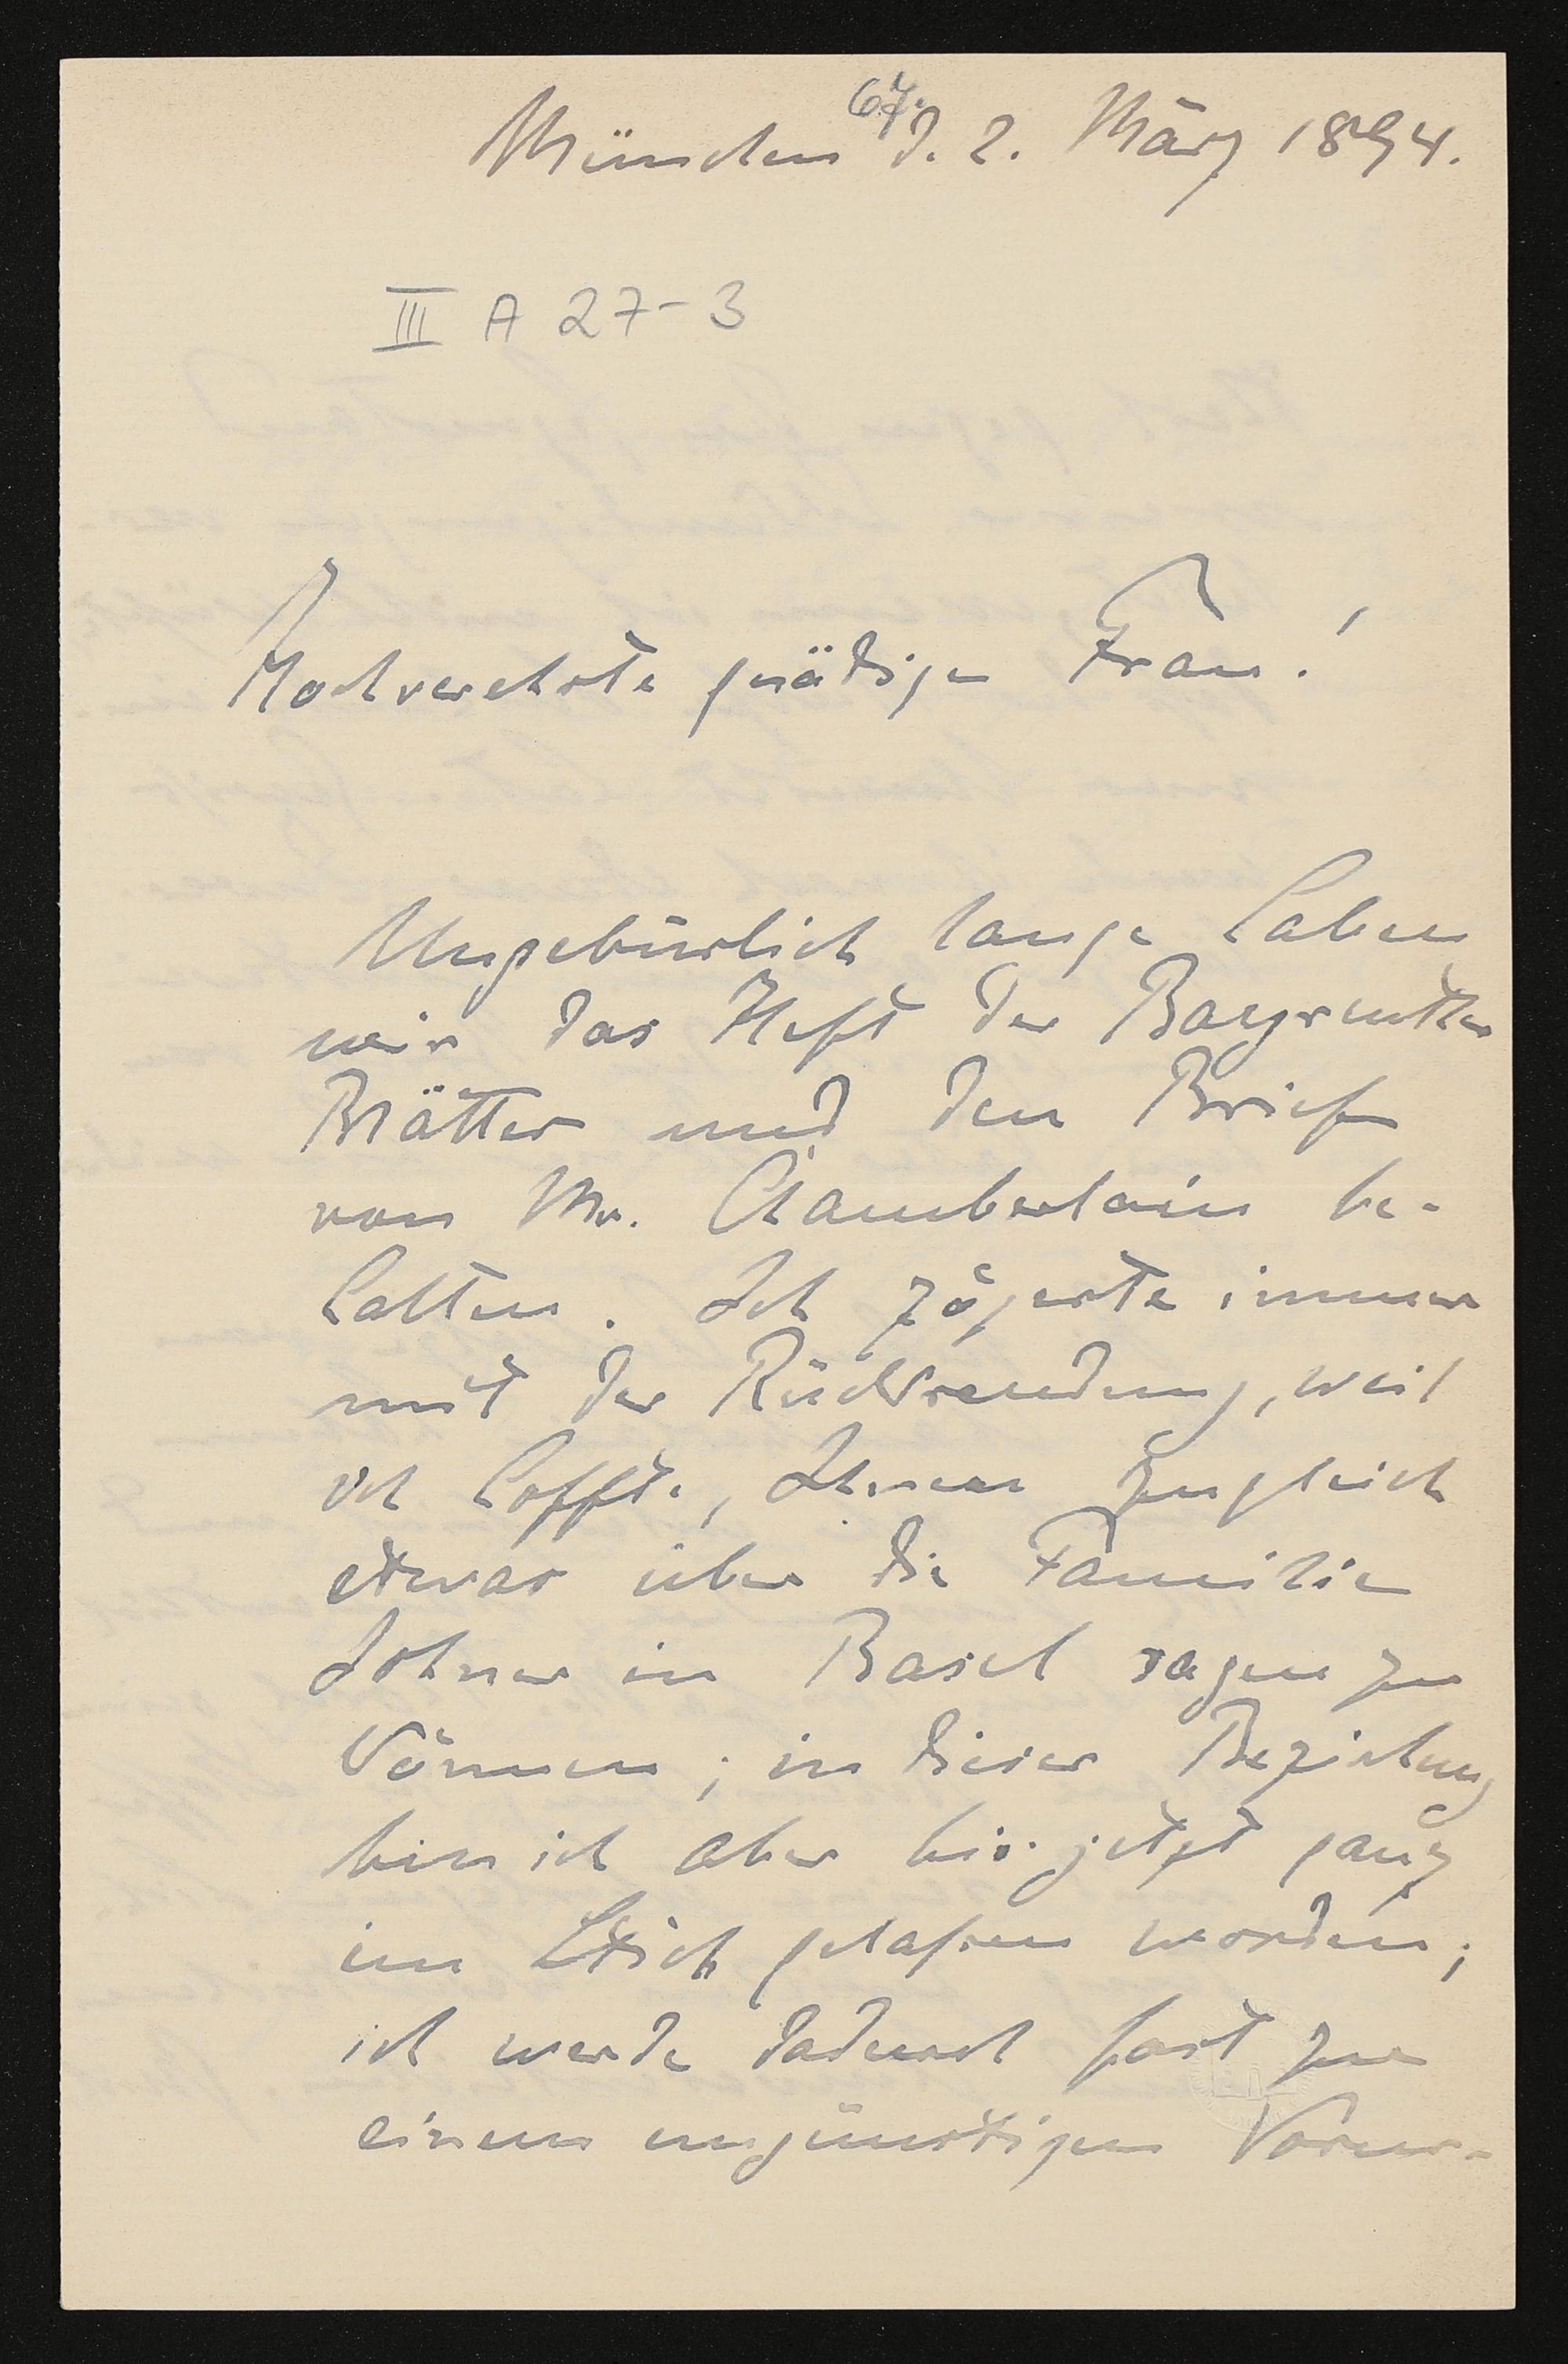 67.
München d. 2. März 1894.
III A 27-3
Hochverehrte gnädige Frau!
Ungebürlich lange haben
wir das Heft der Bayreuther
Blätter und den Brief
von Mr. Chamberlain be-
halten. Ich zögerte immer
mit der Rücksendung, weil
ich hoffte, Ihnen zugleich
etwas über die Familie
in Basel sagen zu
können; in dieser Beziehung
bin ich aber bis jetzt ganz
im Stich gelassen worden;
ich werde dadurch fast zu
einem ungünstigen Vorur-